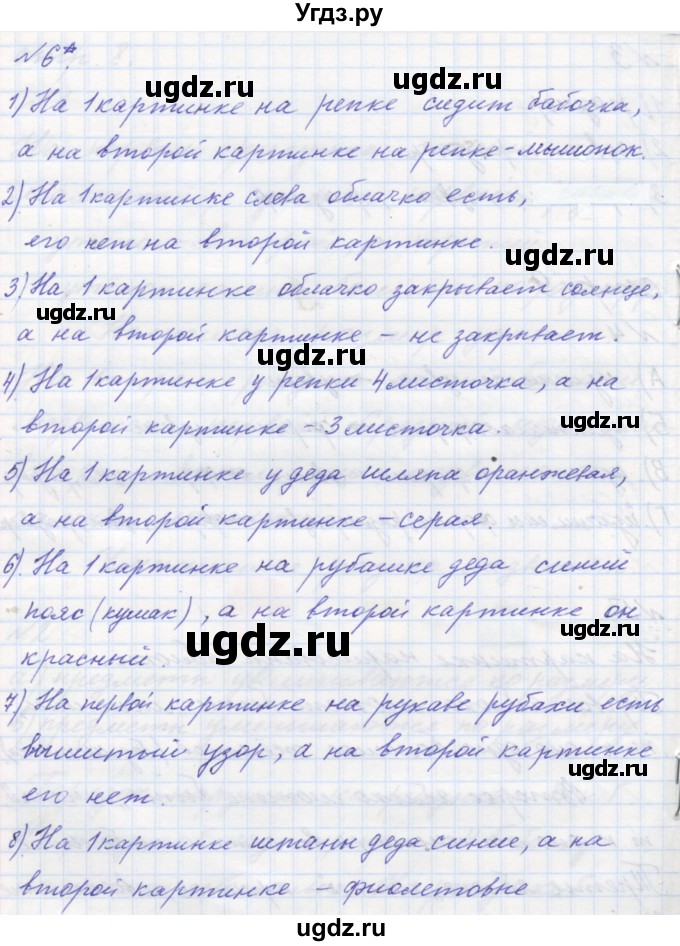 Угдз.ру
№6*.
ugdz.ru
ugdz.ru
1) На 1 картинке на репке сидит бабочка,
а на второй картинке на репке-мышонок.
2) На 1 картинке слева облачко есть,
его нет на второй картинке.
ugdz.ru
3) На 1 картинке облачко закрывает солнце,
ugdz.ru
а на второй картинке – не закрывает.
ugdz.ru
4) На 1 картинке у репки 4 листочка, а на
второй картинке – 3 листочка.
ugdz.ru
5) На 1 картинке у деда шляпа оранжевая,
а на второй картинке – серая.
ugdz.ru
6) На 1 картинке на рубашке деда синий
пояс (кушак), а на второй картинке он
ugdz.ru
ugdz.ru
красный
7) На первой картинке на рукаве рубахи есть
вышитый узор, а на второй картинке
его нет.
ugdz.ru
ugdz.ru
8) На 1 картинке штаны деда синие, а на
второй картинке – фиолетовые
ugdz.ru